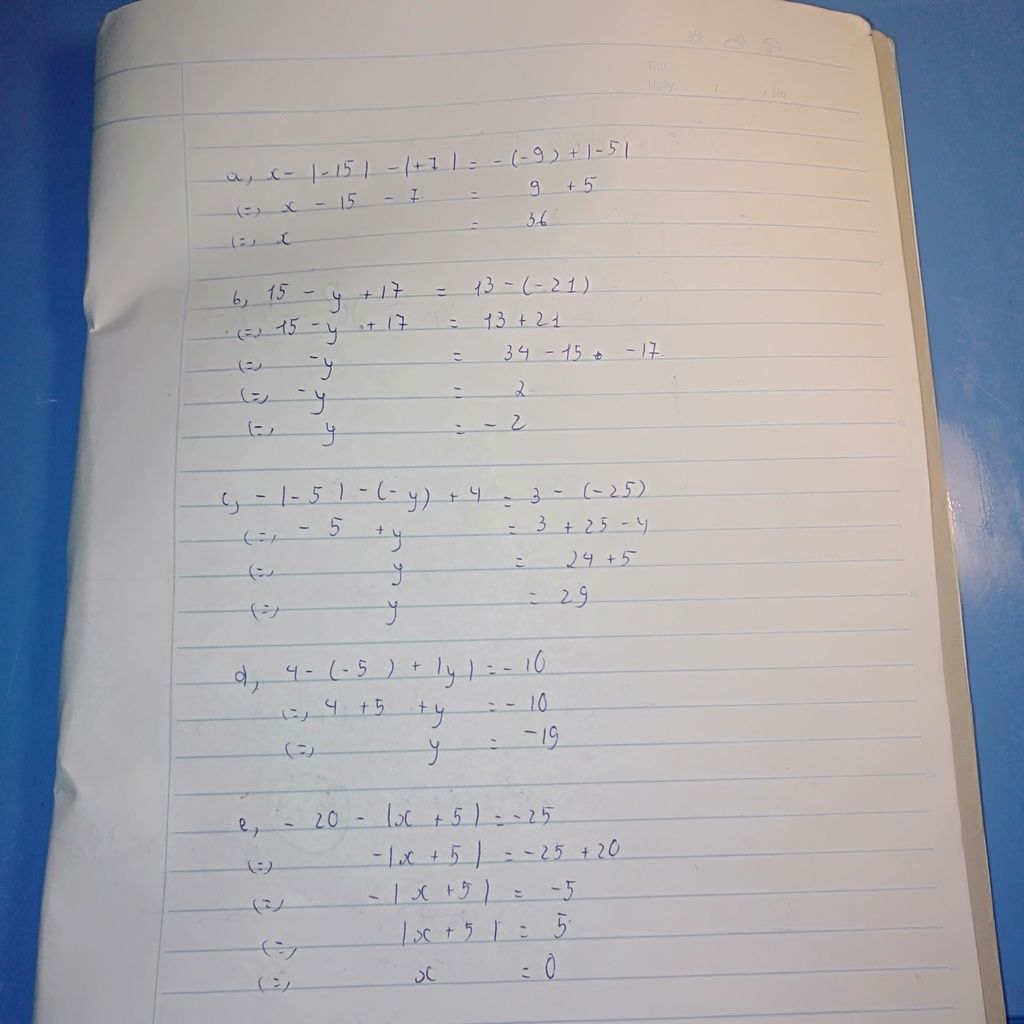 Thứ
Ngày / / No
a, x - |-15| - |+7| = -(-9) + |-5|
(=, x - 15 - 7 = 9 + 5
(=, x = 36
b, 15 - y + 17 = 13 - (-21)
(=, 15 - y + 17 = 13 + 21
(=, -y = 34 - 15 -17
(=, -y = 2
(=, y = - 2
c, - |-5| - (-y) + 4 = 3 - (-25)
(=, - 5 + y = 3 + 25 - 4
(=, y = 24 + 5
(=, y = 29
d, 4 - (-5) + |y| = - 10
(=, 4 + 5 + y = - 10
(=, y = -19
e, - 20 - |x + 5| = -25
(=, -|x + 5| = -25 + 20
(=, -|x + 5| = -5
(=, |x + 5| = 5
(=, x = 0